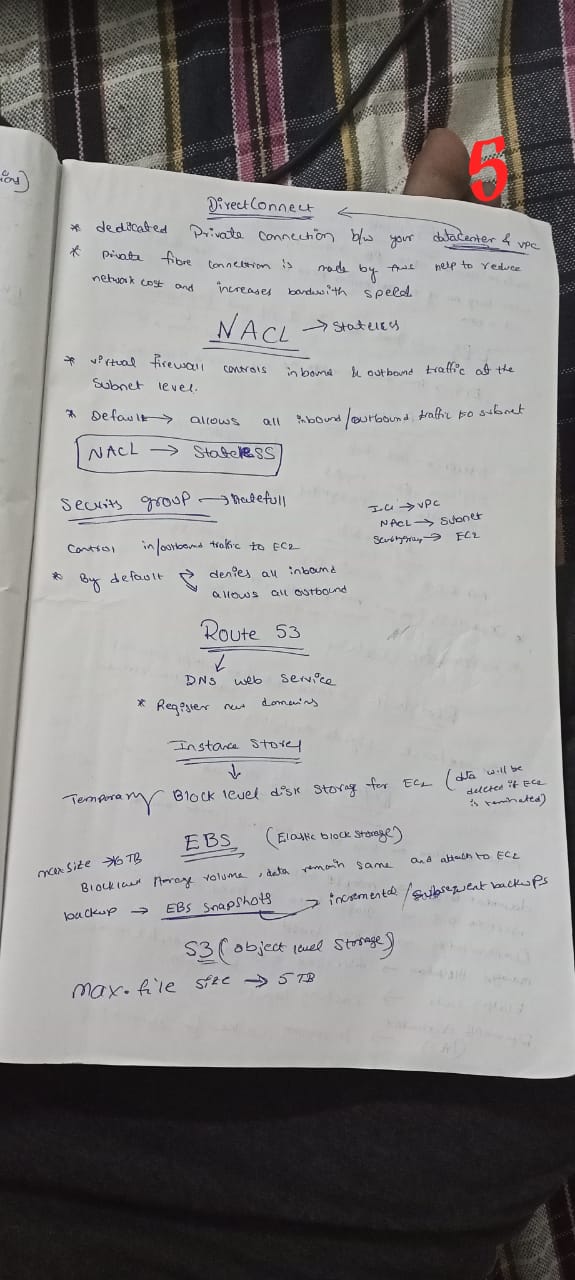 5
ions)
DirectConnect
* dedicated Private connection b/w your datacenter & vpc
* Pivate fibre connection is made by AWS help to reduce
network cost and increases bandwith speed
NACL → Stateless
* virtual firewall controls inbound & outbound traffic at the
Subnet level.
* Default → allows all inbound/outbound traffic to subnet
NACL → Stateless
Security group → Statefull
IG → VPC
NACL → Subnet
Security group → EC2
Control in/outbound traffic to EC2
* By default denies all inbound
allows all outbound
Route 53
↓
DNS web service
* Register new domains
Instance Store
↓
Temporary Block level disk storage for EC2 (data will be
deleted if EC2
is terminated)
EBS (Elastic block storage)
max size → 16 TB
Block level storage volume, data remain same and attach to EC2
backup → EBS Snapshots → incremental / subsequent backups
S3 (object level storage)
max. file size → 5 TB